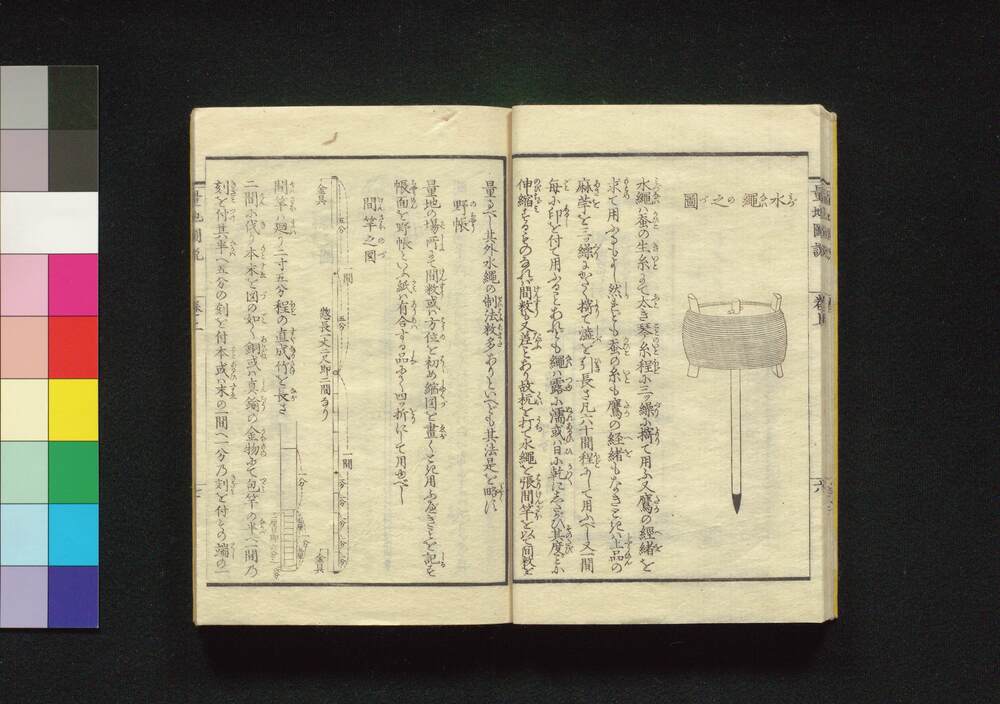 水繩之圖
水繩ハ蚕の生糸にて太き琴糸程に三ッ繰に撚て用ふ又鷹の經緒を
求て用ふるもよし然れども蚕の糸も鷹の経緒もなきときハ上品の
麻苧を三繰にかたく撚て澁を引長さ凡六十間程にして用ふべし又一間
毎に印を付て用ふることあれども繩ハ露に濡或ハ日に乾にしたがひ其度ごとに
伸縮するものなれバ間数も又差ことあり故杭を打て水繩を張間竿を以て間数を
量るべし其外水繩の制法数多ありといへども其法是を略す
野帳
量地の場所にて間数或ハ方位を初め縮図を畫くとき用ふべきことを記す
帳面を野帳といふ紙ハ有合する品にて四ッ折にして用也べし
間竿之図
金具
五分
一間
五分
一間
惣長一丈二尺即二間なり
金具
間竿ハ廻り二寸五分程の直成竹を長さ
二間に伐り本末を図の如く銅或ハ真鍮の金物にて包竿の半へ一間乃
刻を付其半へ五分の刻を付本或ハ末の一間へ一分乃刻を付其の端の一
量地圖説
卷上